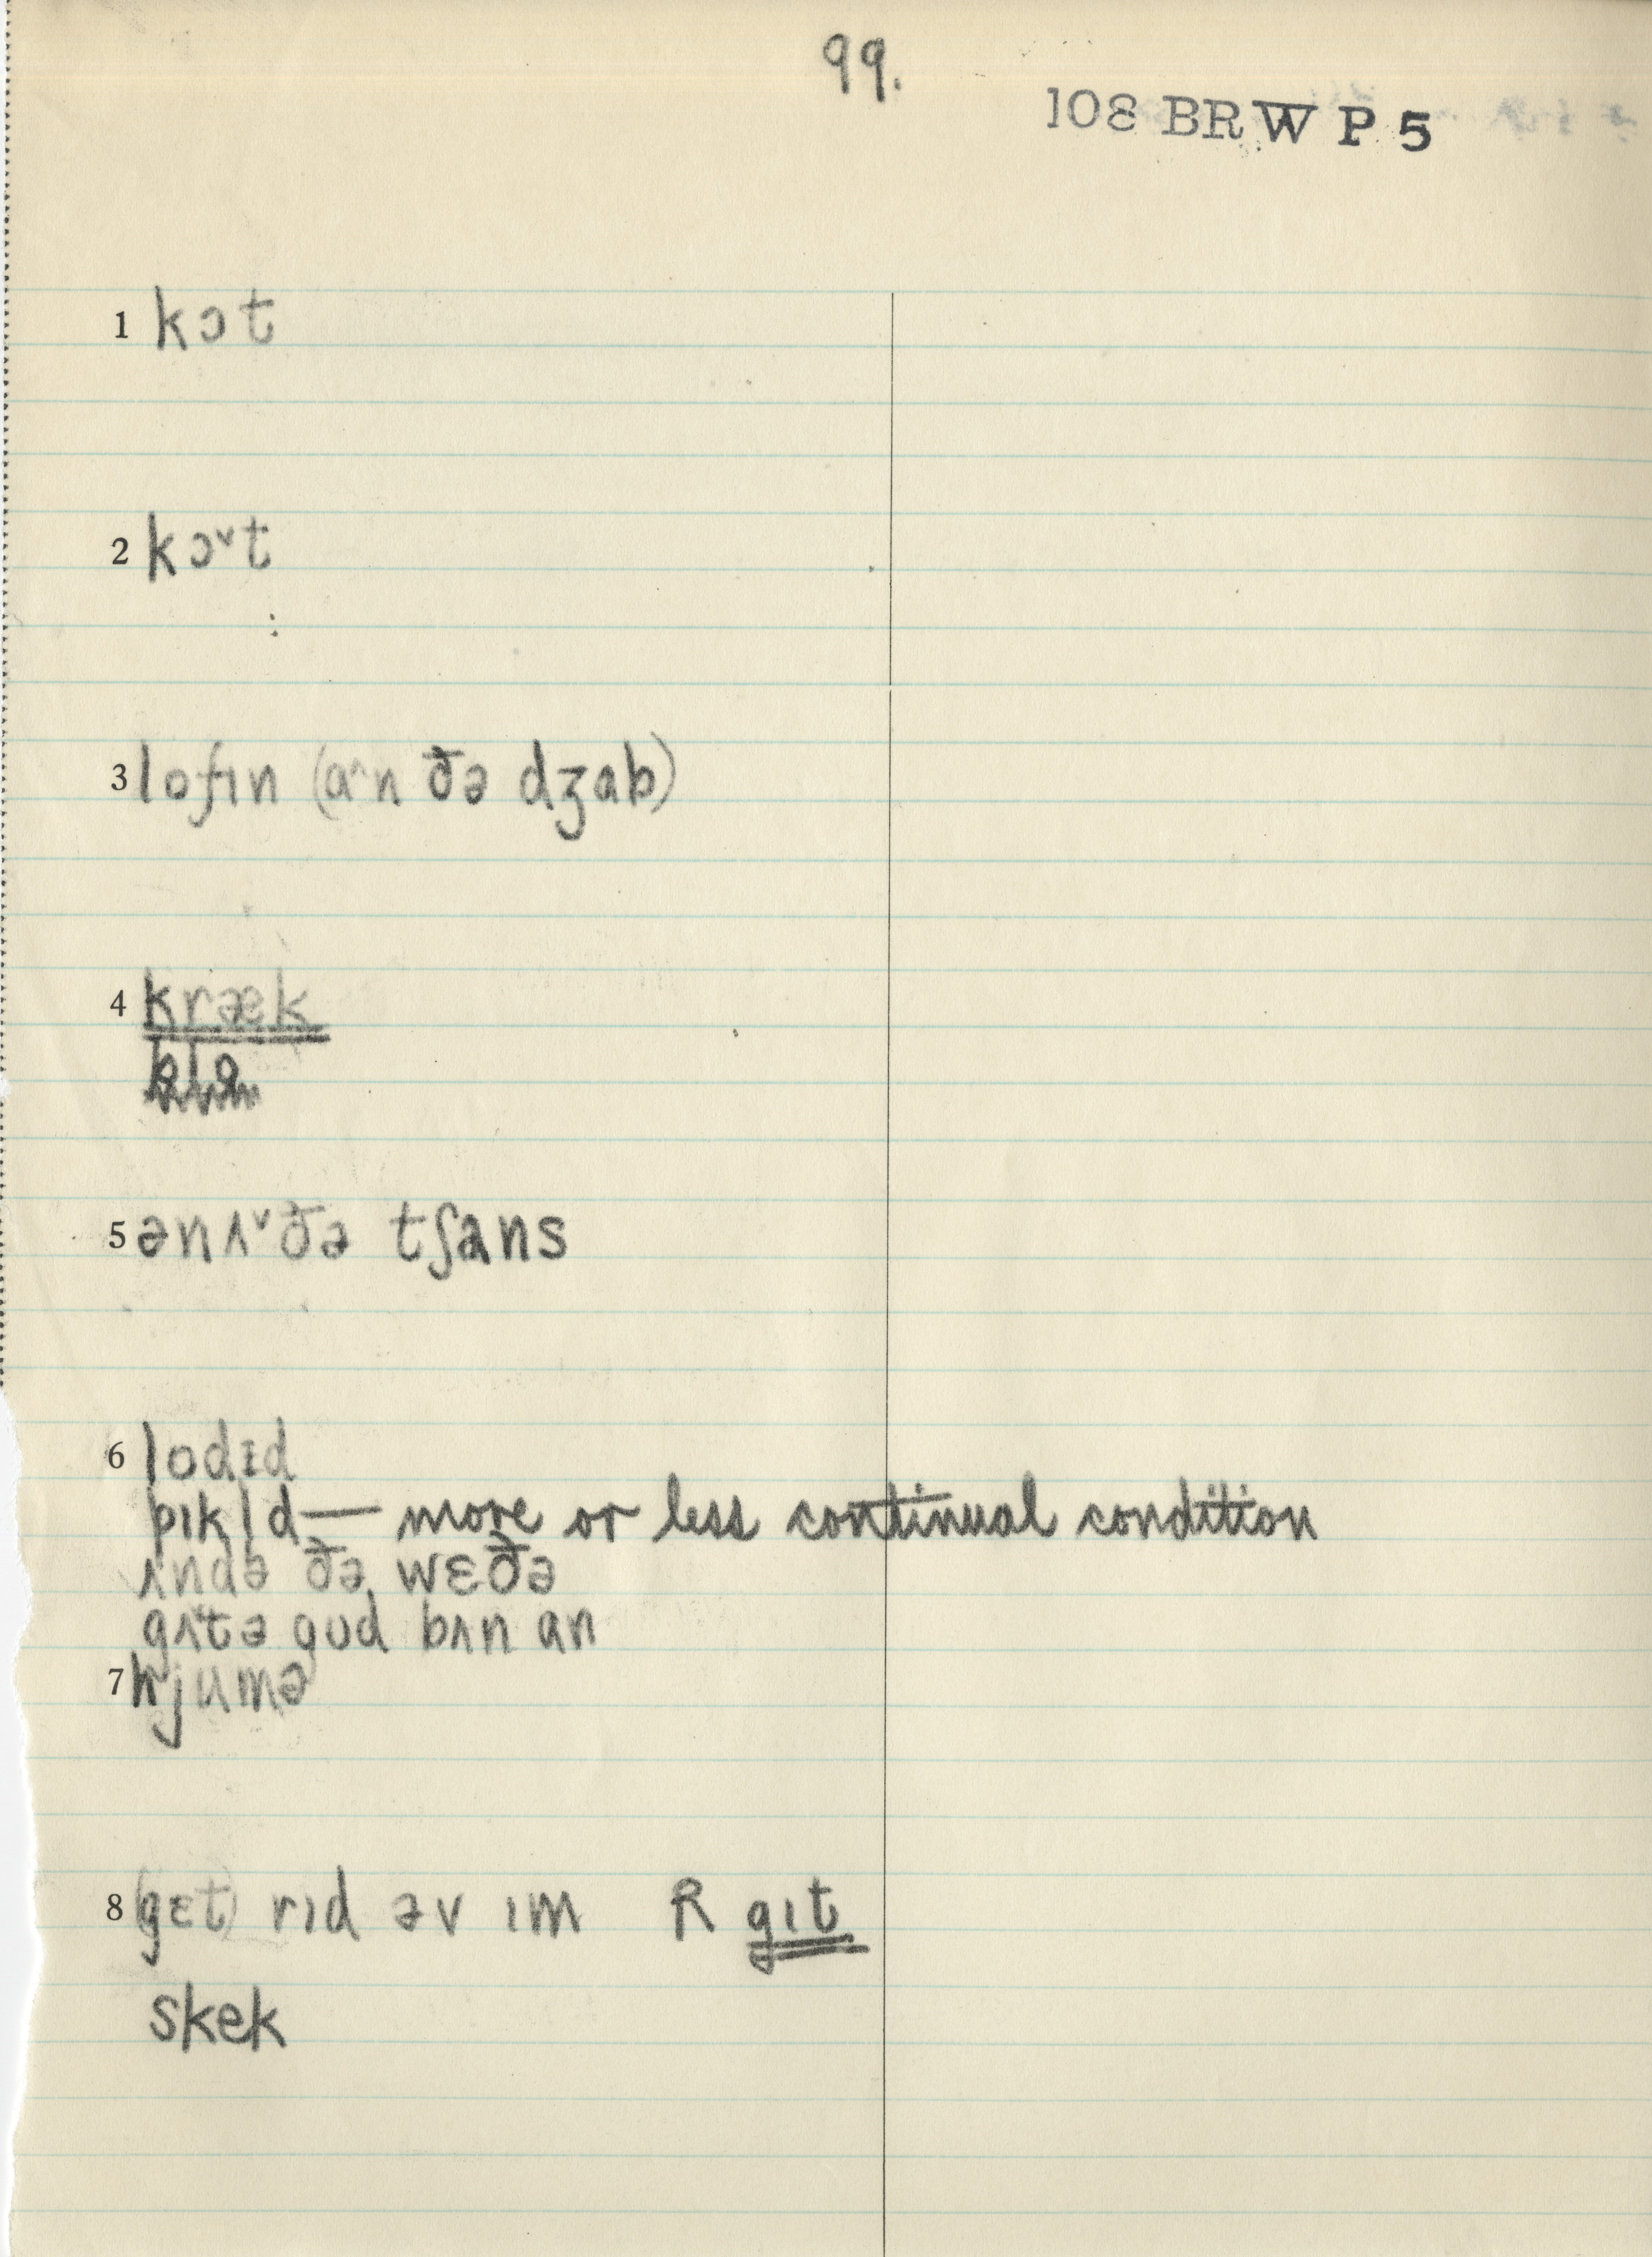 99.
108 BRW P 5
1 kɔt
2 kɔ˅t
3 lofɪn (ɑ˄n ðə dʒɑb)
4 kræk
blo
5 ənʌ˅ðə tʃans
6 lodɪd
pɪkl̩d — more or less continual condition
ʌndə ðə wɛðə
gʌ˅tə gʊd bʌn ɑn
7 hjumə
8 (gɛt) rɪd əv ɪm R gɪt
skek